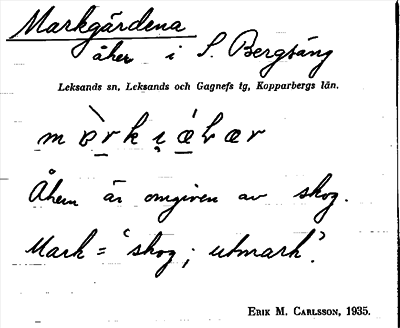 Markgärdena
åker i S. Bergsäng
Leksands sn, Leksands och Gagnefs tg, Kopparbergs län.
Åkern är omgiven av skog.
Mark = 'skog; utmark'.
Erik M. Carlsson, 1935.